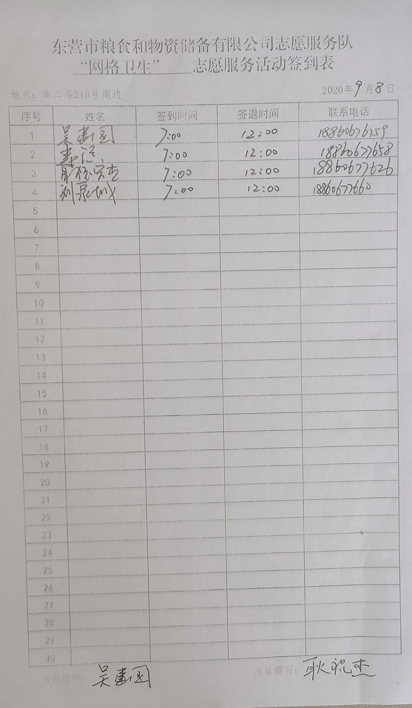 东营市粮食和物资储备有限公司志愿服务队
“网格卫生” 志愿服务活动签到表
地点：南二路216号周边 2020年9月8日
序号 姓名 签到时间 签退时间 联系电话
1 吴建国 7:00 12:00
2 7:00 12:00 18860677658
3 7:00 12:00 18860677626
4 7:00 12:00 18860677660
5
6
7
8
9
10
11
12
13
14
15
16
17
18
19
20
21
22
23
24
25
26
27
28
29
30
吴建国